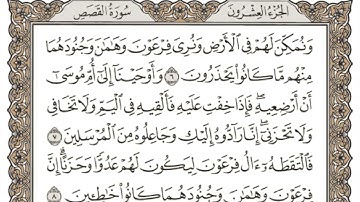 الجزء العشرون سورة القصص
وَنُمَكِّنَ لَهُمْ فِي ٱلْأَرْضِ وَنُرِيَ فِرْعَوْنَ وَهَٰمَٰنَ وَجُنُودَهُمَا
مِنْهُم مَّا كَانُوا۟ يَحْذَرُونَ ٦ وَأَوْحَيْنَآ إِلَىٰٓ أُمِّ مُوسَىٰٓ
أَنْ أَرْضِعِيهِ ۖ فَإِذَا خِفْتِ عَلَيْهِ فَأَلْقِيهِ فِي ٱلْيَمِّ وَلَا تَخَافِي
وَلَا تَحْزَنِيٓ ۖ إِنَّا رَآدُّوهُ إِلَيْكِ وَجَاعِلُوهُ مِنَ ٱلْمُرْسَلِينَ ٧
فَٱلْتَقَطَهُۥٓ ءَالُ فِرْعَوْنَ لِيَكُونَ لَهُمْ عَدُوًّا وَحَزَنًا ۗ إِنَّ
فِرْعَوْنَ وَهَٰمَٰنَ وَجُنُودَهُمَا كَانُوا۟ خَٰطِـِٔينَ ٨